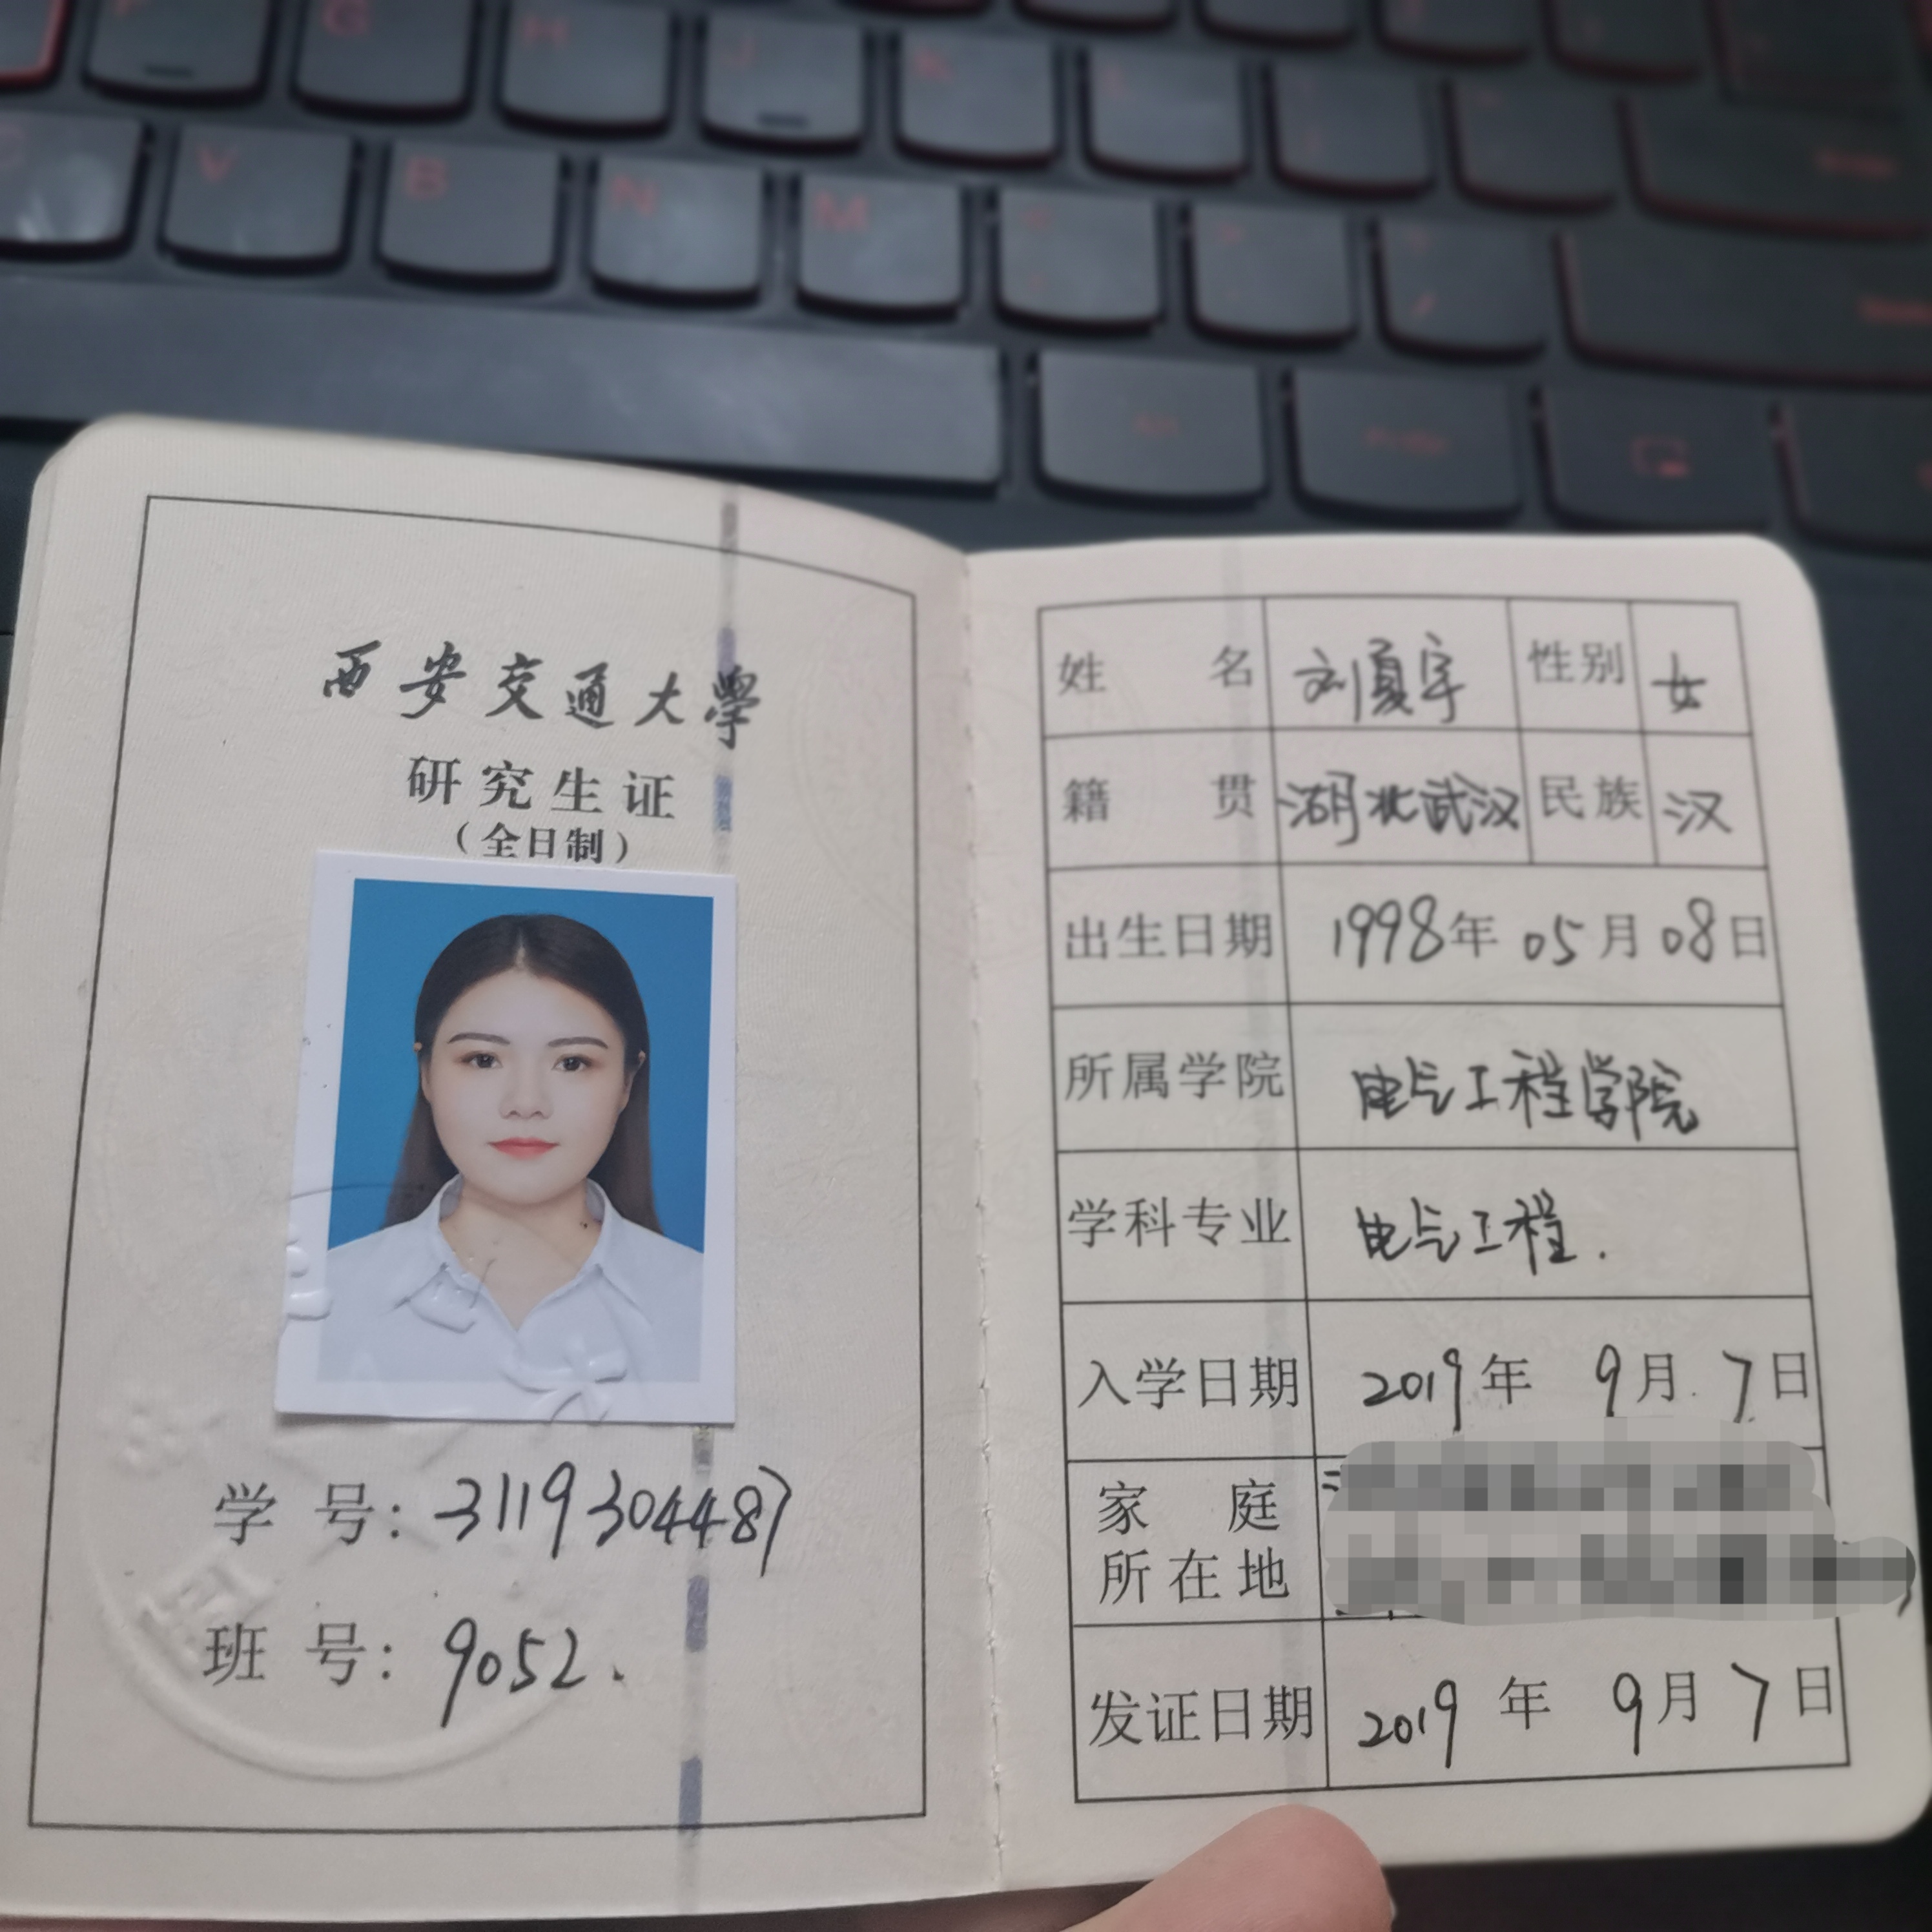 西安交通大學
研究生证
（全日制）
学号：3119304487
班号：9052.
姓名 刘夏宇 性别 女
籍贯 湖北武汉 民族 汉
出生日期 1998年05月08日
所属学院 电气工程学院
学科专业 电气工程.
入学日期 2019年9月7日
家庭
所在地
发证日期 2019年9月7日
G
H
J
K
L
V
B
N
M